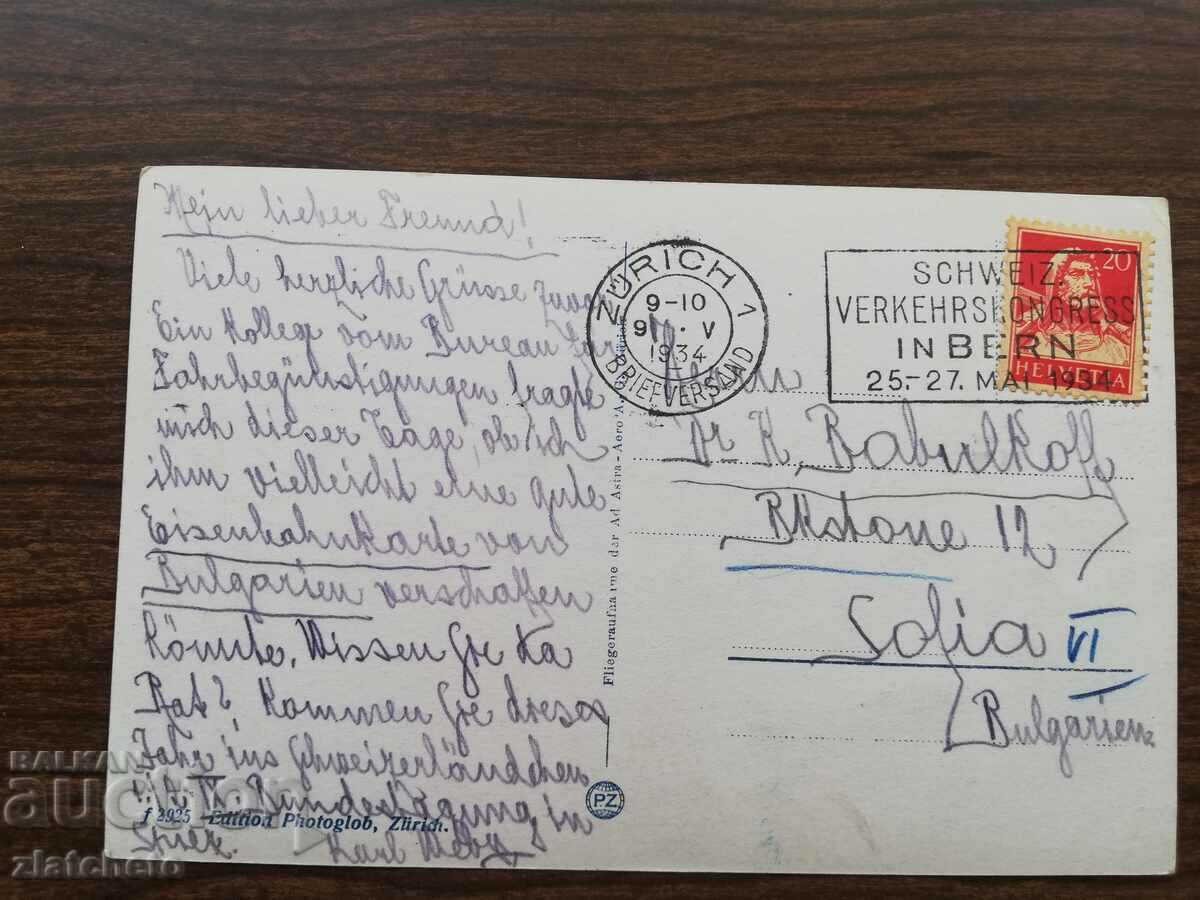 Mein lieber Freund!
Viele herzliche Grüsse zuvor
Ein Kolleg vom Bureau für
Fahrbegünstigungen fragte
mich dieser Tage, ob ich
ihm vielleicht eine gute
Eisenbahnkarte von
Bulgarien verschaffen
könnte. Wissen Sie da
Rat? Kommen Sie dieses
Jahr ins Schweizerländchen
Bundestagung in
Spiez. Karl
f 2925 Edition Photoglob, Zürich.
Fliegeraufnahme der Ad Astra-Aero A.
PZ
ZÜRICH 1
9-10
9. V
1934
BRIEFVERSAND
SCHWEIZ.
VERKEHRSKONGRESS
IN BERN
25.-27. MAI 1934
20
HELVETIA
Herrn
Dr K. Babulkoff
12
Sofia VI
Bulgarien
BALKAN
auction
zlatcheto